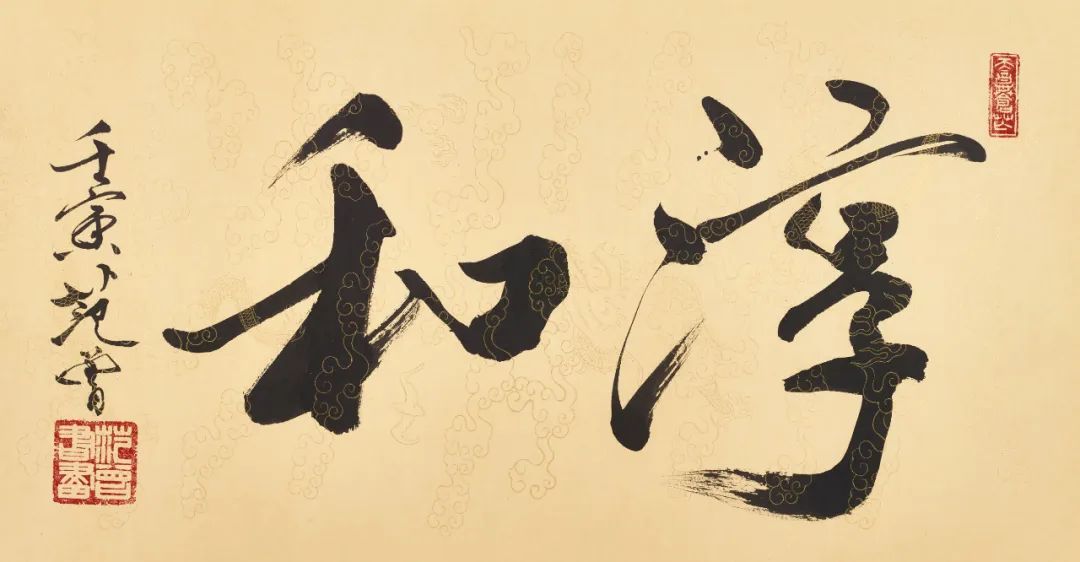 淳和
壬寅范曾
范曾書畫